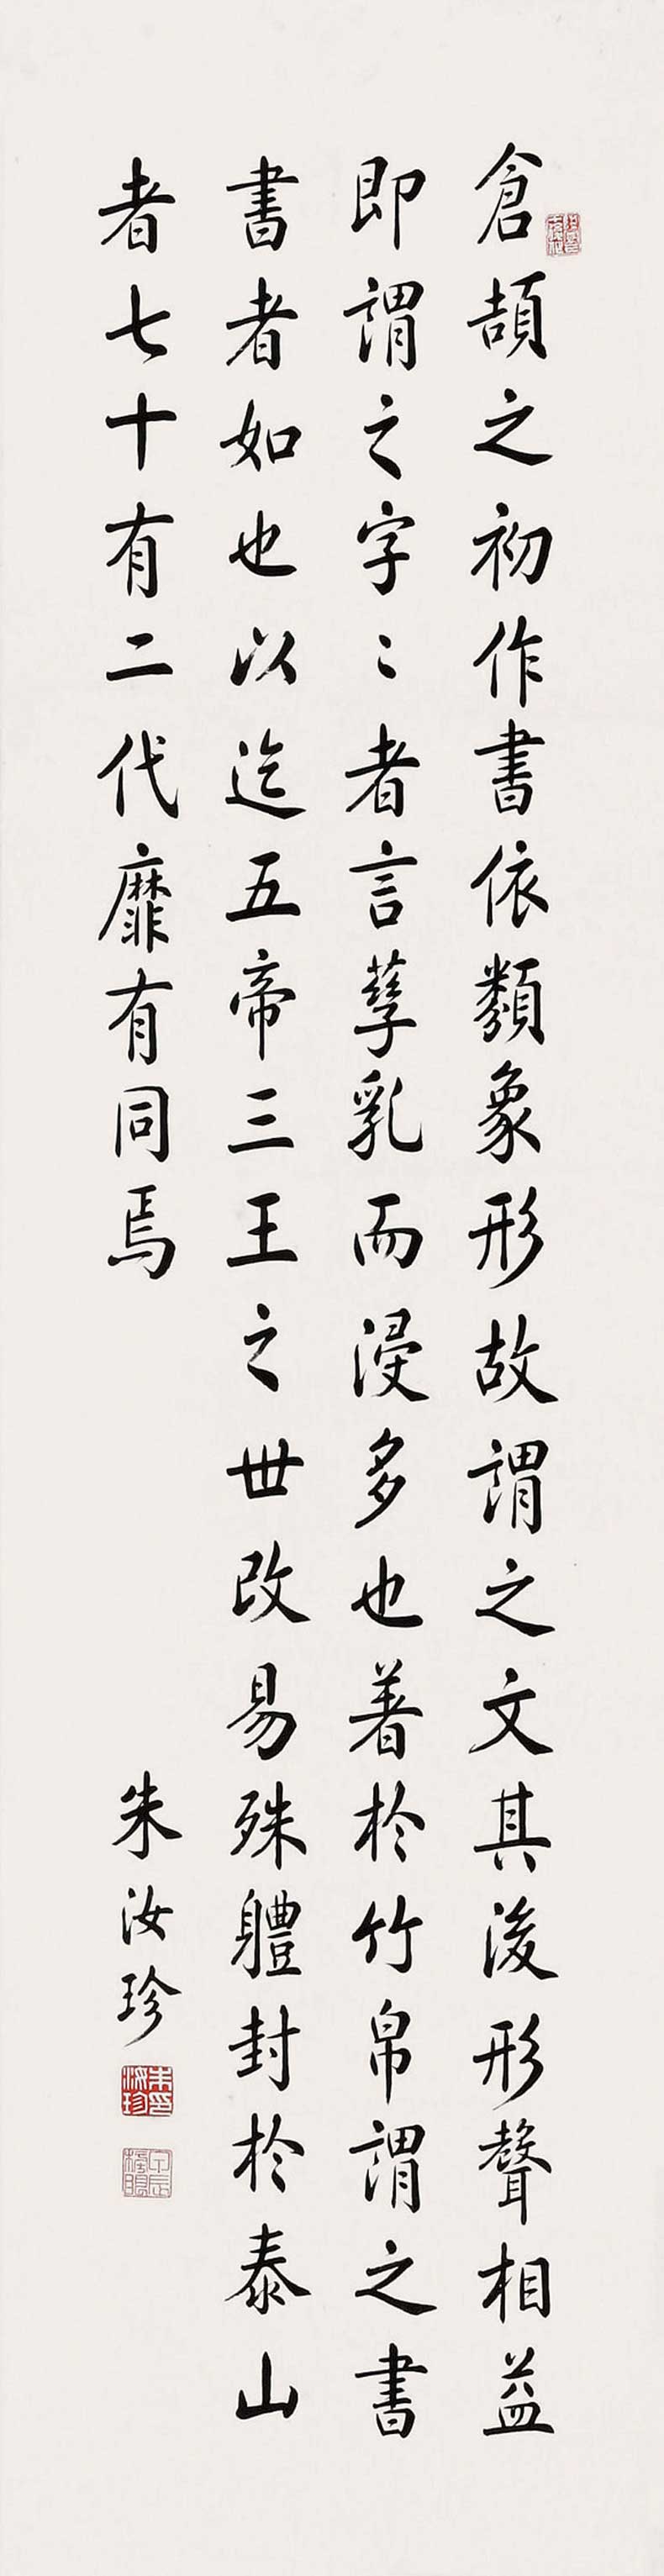 倉頡之初作書依類象形故謂之文其後形聲相益
即謂之字〻者言孳乳而浸多也著於竹帛謂之書
書者如也以迄五帝三王之世改易殊體封於泰山
者七十有二代靡有同焉
朱汝珍
朱汝珍印
甲辰榜眼